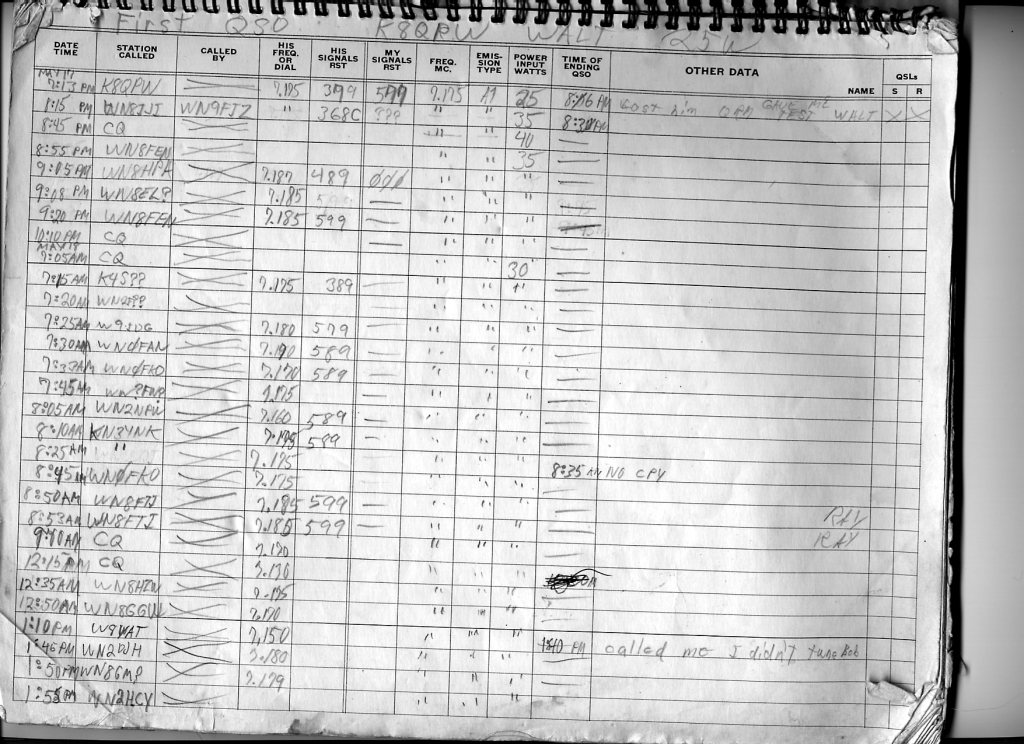 First QSO K8QPW WALT 25W
DATE TIME STATION CALLED CALLED BY HIS FREQ. OR DIAL HIS SIGNALS RST MY SIGNALS RST FREQ. MC. EMIS- SION TYPE POWER INPUT WATTS TIME OF ENDING QSO OTHER DATA QSLs
NAME S R
MAY 17
7:13 PM K8QPW 7.175 399 599 7.175 A1 25 8:16 PM Lost him QRM WALT X X
1:15 PM WN8JJJ WN9FJZ " 368C ??? " " 35 8:30 PM
8:45 PM CQ " " 40 —
8:55 PM WN8FEN " " 35 —
9:05 AM WN8HPA 7.187 489 " " " —
9:18 PM 7.185 — " " "
9:20 PM WN8FEN 7.185 599 — " " "
10:10 PM CQ — " " " —
MAY 18
7:05 AM CQ " " 30 —
7:15 AM K4S?? 7.175 389 — " " " —
7:20 AM — " " " —
7:25 AM 7.180 579 — " " " —
7:30 AM WNØFAN 7.190 589 — " " " —
WNØFKO 7.170 589 — " " " —
7:45 AM 7.175 — " " " —
8:05 AM WN2NPW 7.160 589 — " " " —
8:10 AM KN3YNK 7.175 589 — " " " —
8:25 AM " 7.175 — " " " 8:35 AM NO CPY
8:45 AM WNØFKO 7.175 — " " " —
8:50 AM WN8FTJ 7.185 599 — " " " —
8:53 AM WN8FTJ 7.185 599 — " " " — RAY
CQ 7.170 " " " — RAY
12:15 PM CQ 7.170 " " " —
12:35 AM 7.175 " " "
12:50 AM WN8GGW 7.170 " " " —
1:10 PM W9WAT 7.150 " " " —
1:46 PM WN2DJH 7.180 " " " 1:40 PM called me I didn't tune Rob
1:50 PM WN8GMP 7.179 " " " —
1:55 PM WN2HCY " " " —